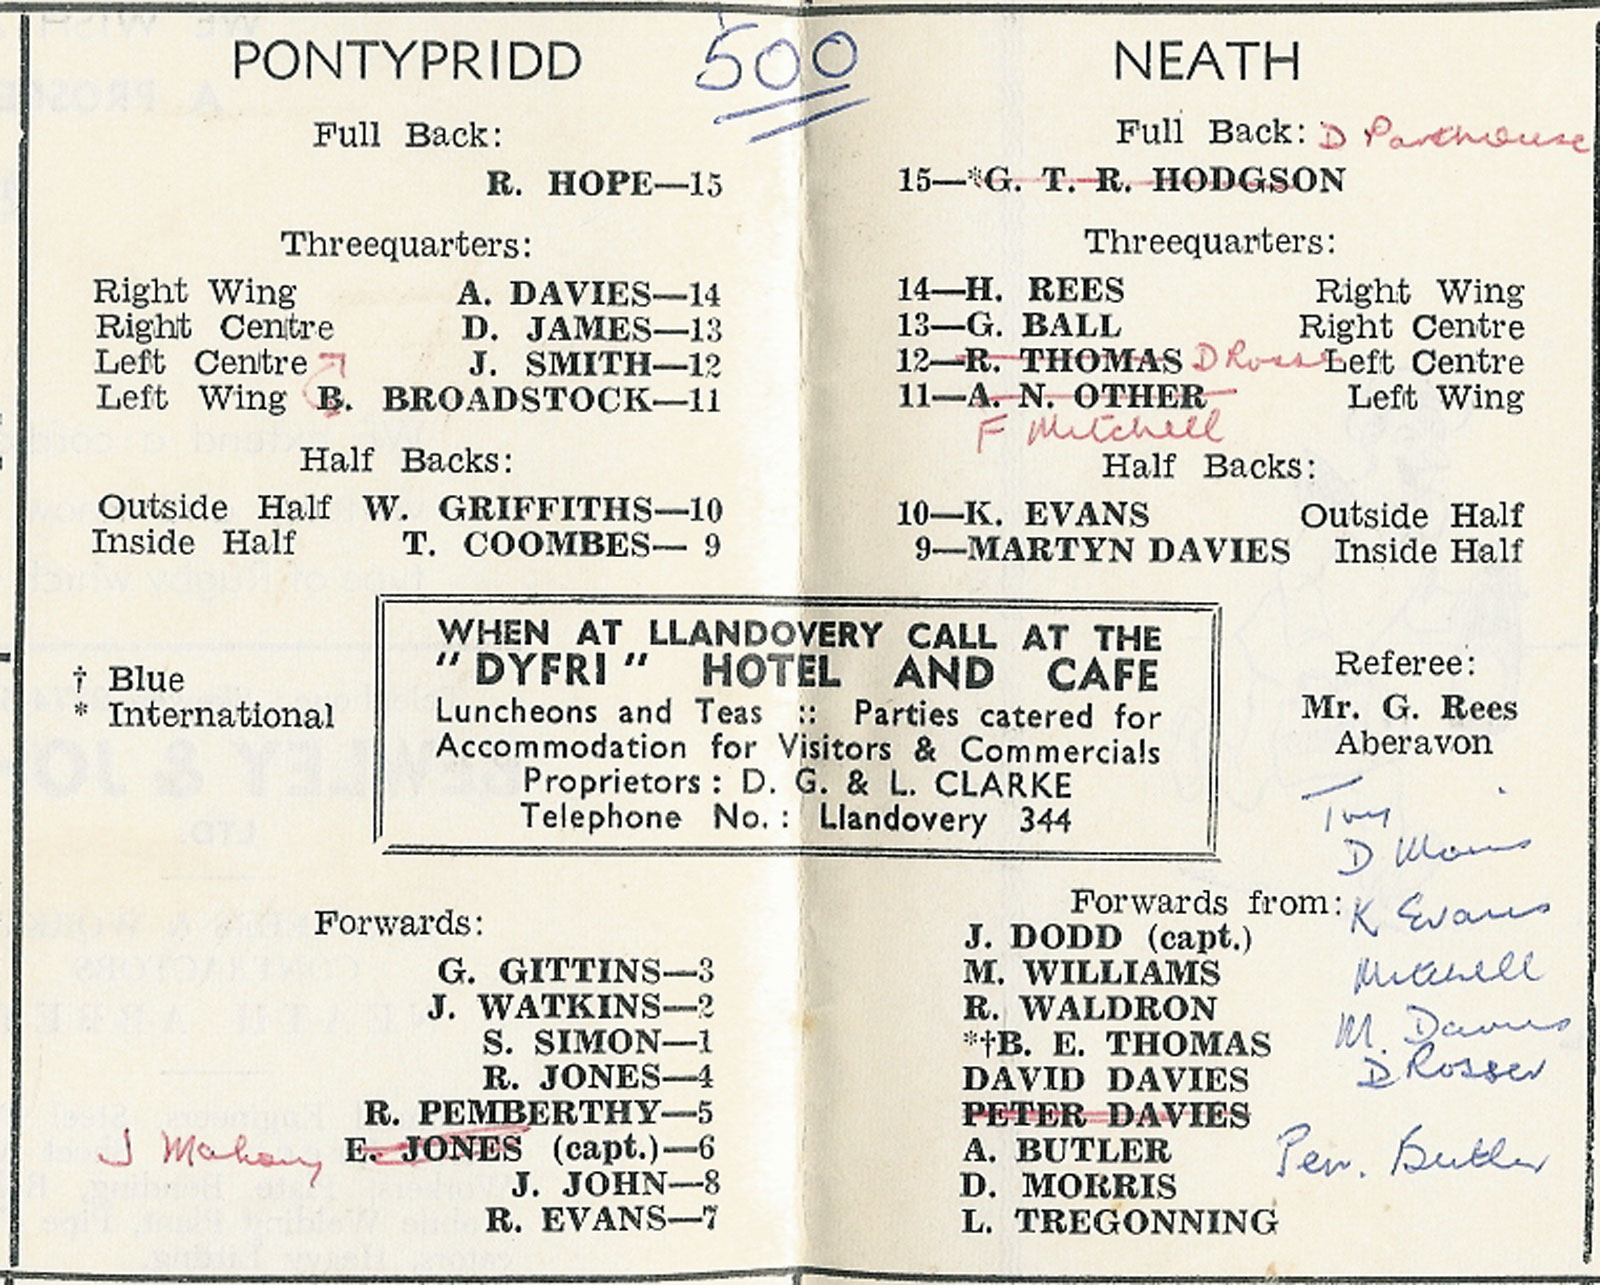 500
PONTYPRIDD
Full Back:
R. HOPE—15
Threequarters:
Right Wing A. DAVIES—14
Right Centre D. JAMES—13
Left Centre J. SMITH—12
Left Wing B. BROADSTOCK—11
Half Backs:
Outside Half W. GRIFFITHS—10
Inside Half T. COOMBES— 9
NEATH
Full Back: D Parkhouse
15—*G. T. R. HODGSON
Threequarters:
14—H. REES Right Wing
13—G. BALL Right Centre
12—R. THOMAS D Rosser Left Centre
11—A. N. OTHER Left Wing
F Mitchell
Half Backs:
10—K. EVANS Outside Half
9—MARTYN DAVIES Inside Half
† Blue
* International
WHEN AT LLANDOVERY CALL AT THE
"DYFRI" HOTEL AND CAFE
Luncheons and Teas :: Parties catered for
Accommodation for Visitors & Commercials
Proprietors : D. G. & L. CLARKE
Telephone No. : Llandovery 344
Referee:
Mr. G. Rees
Aberavon
Forwards:
G. GITTINS—3
J. WATKINS—2
S. SIMON—1
R. JONES—4
R. PEMBERTHY—5
J Mahony E. JONES (capt.)—6
J. JOHN—8
R. EVANS—7
Try
D Morris
K Evans
Mitchell
M. Davies
D Rosser
Pen. Butler
Forwards from:
J. DODD (capt.)
M. WILLIAMS
R. WALDRON
*†B. E. THOMAS
DAVID DAVIES
PETER DAVIES
A. BUTLER
D. MORRIS
L. TREGONNING